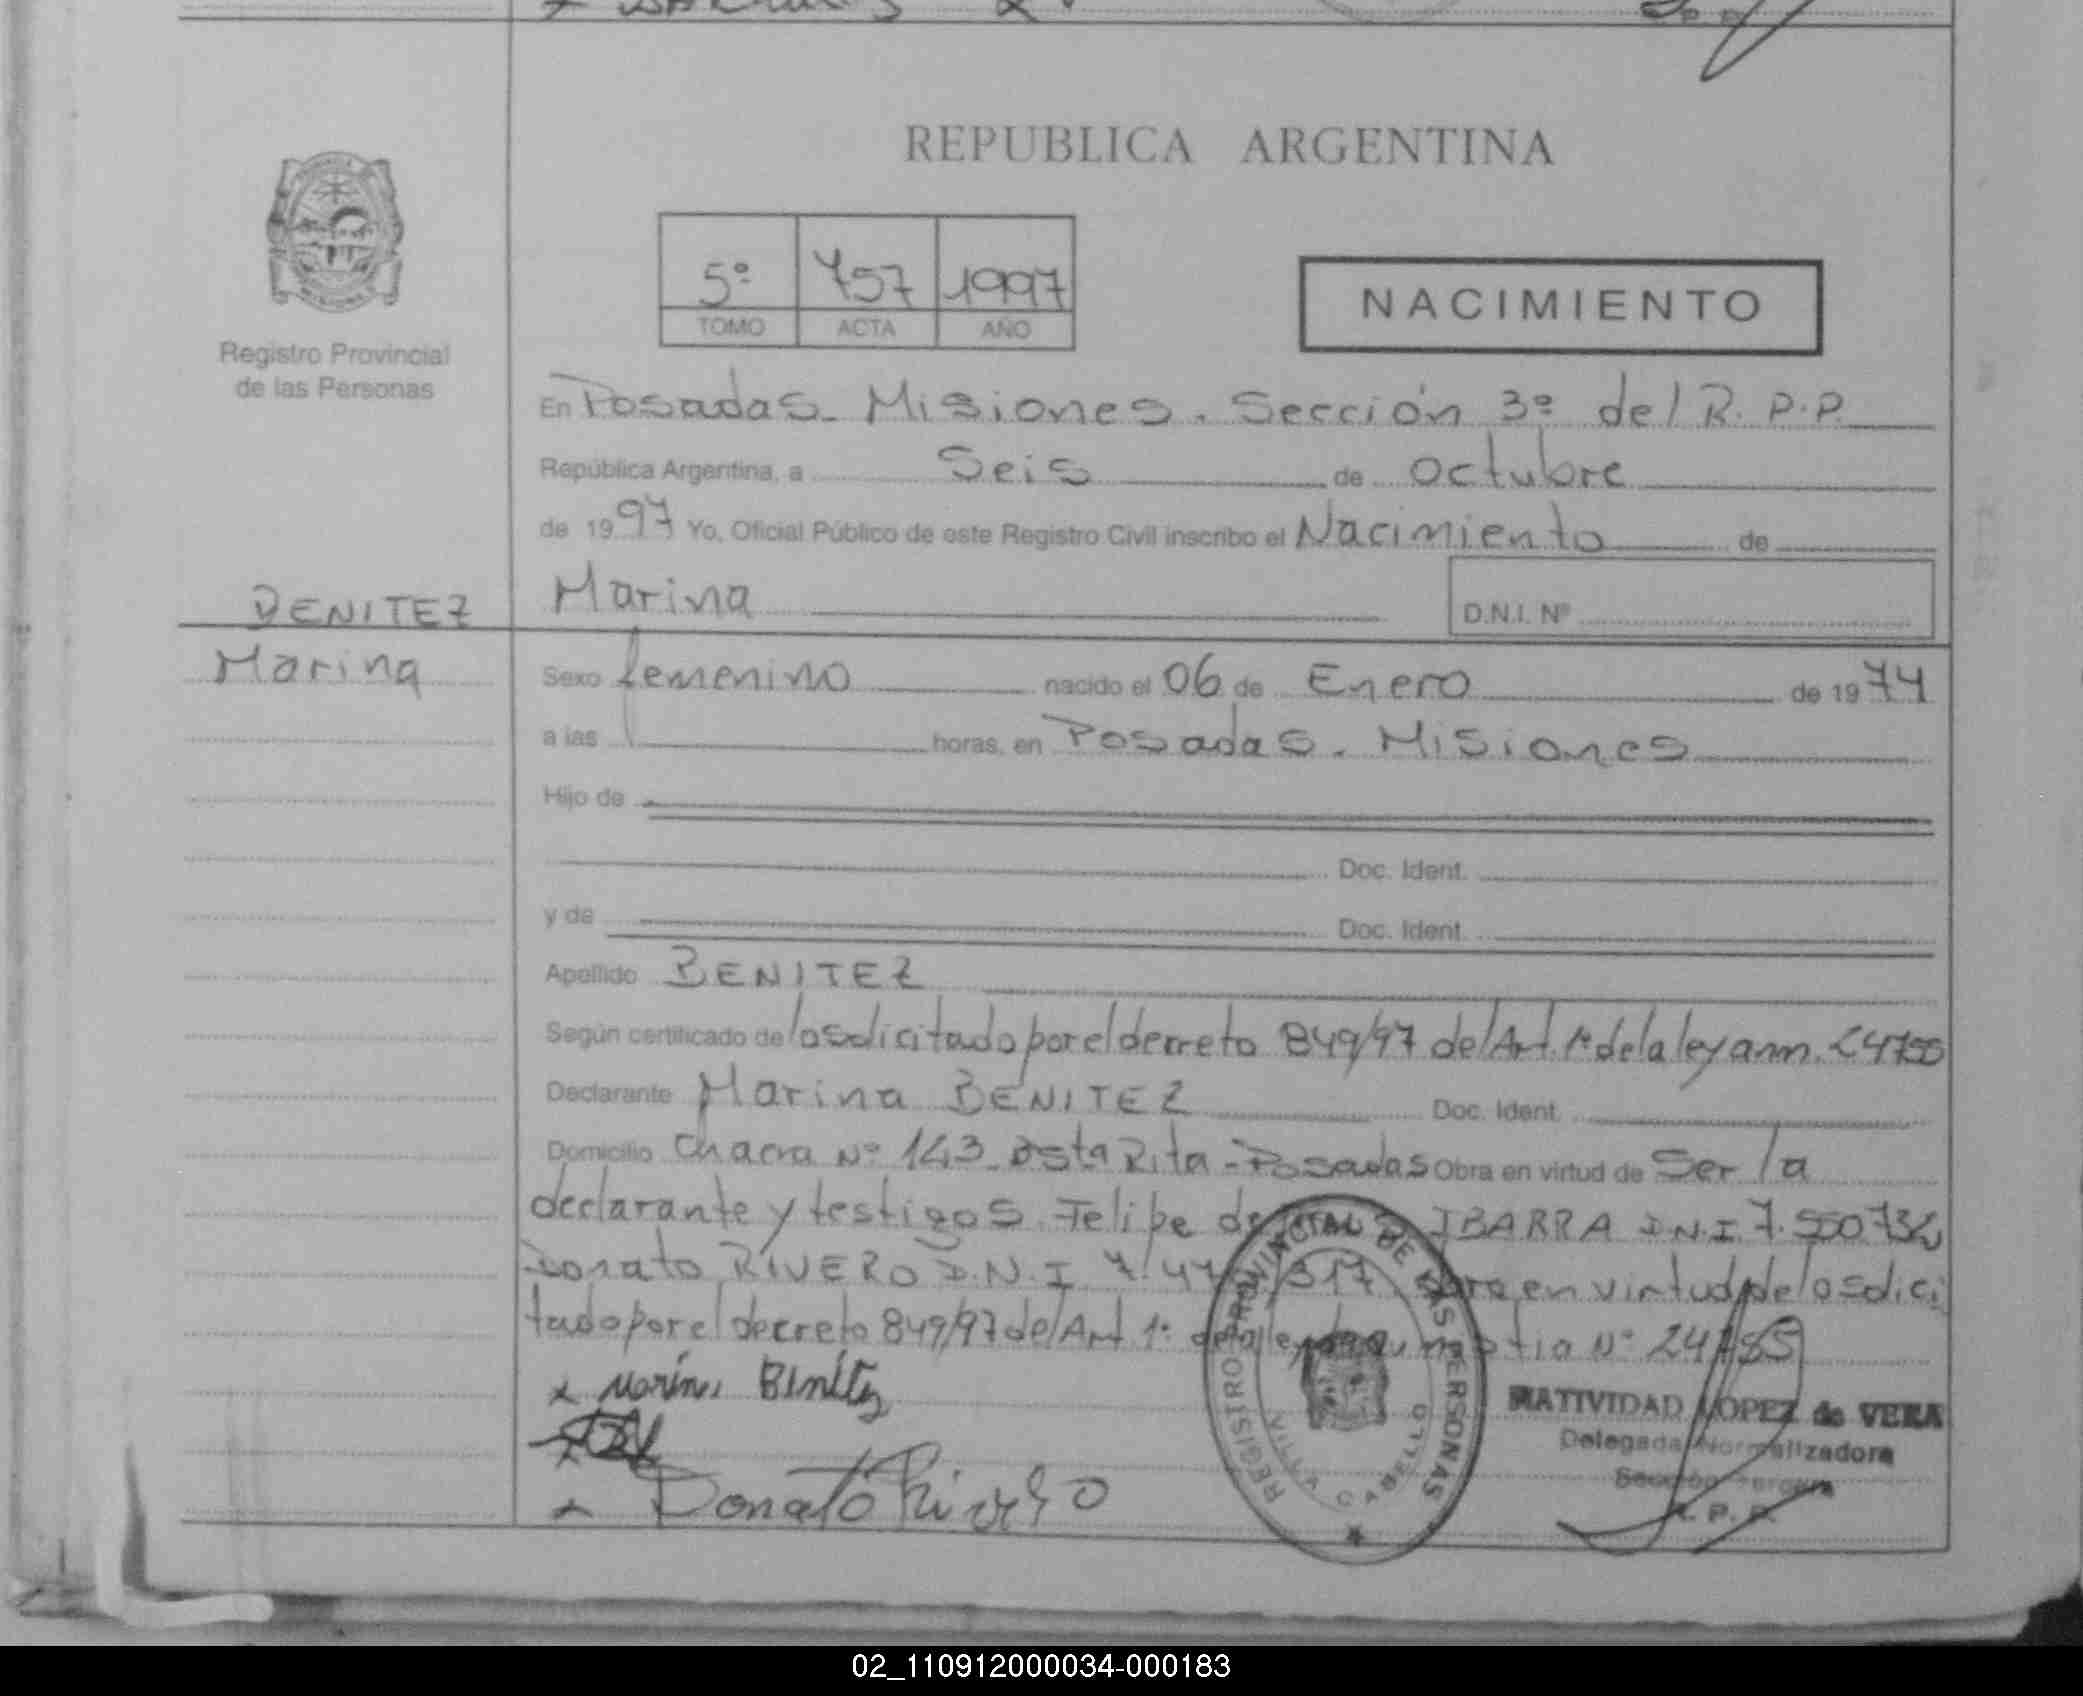 REPUBLICA ARGENTINA
5º 757 1997
TOMO ACTA AÑO
NACIMIENTO
Registro Provincial
de las Personas
En Posadas - Misiones. Sección 3º del R.P.P.
República Argentina, a Seis de octubre
de 1997 Yo, Oficial Público de este Registro Civil inscribo el Nacimiento de
BENITEZ
Marina
Marina D.N.I. Nº
Sexo femenino nacido el 06 de Enero de 1974
a las horas, en Posadas. Misiones
Hijo de
Doc. Ident.
y de Doc. Ident.
Apellido BENITEZ
Según certificado de lo solicitado por el decreto 849/97 del Art. 1º de la ley
Declarante Marina BENITEZ Doc. Ident.
Domicilio Chacra Nº 143 Sta Rita - Posadas Obra en virtud de Ser la
declarante y testigos Felipe de IBARRA D.N.I. 7.550.73
Donato RIVERO D.N.I 7.47 317 obra en virtud de lo solici
tado por el decreto 849/97 del Art. 1º de la ley Nº 24755
x Marina Benítez
x Donato Rivero
REGISTRO PROVINCIAL DE LAS PERSONAS
VILLA CABELLO
NATIVIDAD LOPEZ de VERA
Delegada Normalizadora
Sección Tercera
R. P. P.
02_110912000034-000183